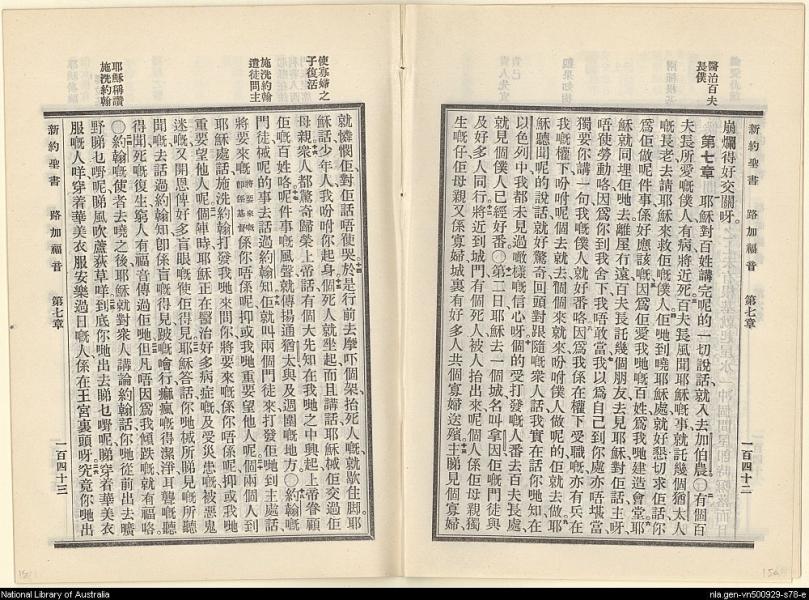 新約聖書 路加福音 第七章 一百四十二
醫治百夫
長僕
崩爛得好交關呀。
第七章 耶穌對百姓講完呢的一切說話就入去加伯農○有個百
夫長所愛嘅僕人有病將近死百夫長風聞耶穌嘅事就託幾個猶太人
嘅長老去請耶穌來救佢嘅僕人佢哋到曉耶穌處就好懇切求佢話你
爲佢做呢件事係好應該嘅因爲佢愛我哋嘅百姓爲我哋建造會堂耶
穌就同埋佢哋去離屋冇遠百夫長託幾個朋友去見耶穌對佢話主呀
唔使勞動咯因爲你到我舍下我唔敢當我以爲自己到你處亦唔堪當
獨要你講一句我嘅僕人就好番咯因爲我係在權下受職嘅亦有兵在
我嘅權下吩咐呢個去就去個個來就來吩咐僕人做呢的佢就去做耶
穌聽聞呢的說話就好驚奇回頭對跟隨嘅衆人話我實在話你哋知在
以色列中我都未見過噉樣嘅信心呀個的受打發嘅人番去百夫長處
就見個僕人已經好番○第二日耶穌去一個城名叫拿因佢嘅門徒與
及好多人同行將近到城門有個死人被人抬出來呢個人係佢母親獨
生嘅仔佢母親又係寡婦城裏有好多人共個寡婦送殯主睇見個寡婦
新約聖書 路加福音 第七章 一百四十三
使寡婦之
子復活
施洗約翰
遣徒問主
耶穌稱讚
施洗約翰
就憐憫佢對佢話唔使哭於是行前去摩吓個架抬死人嘅就歇住脚耶
穌話少年人我吩咐你起身個死人就坐起而且講話耶穌械佢交過佢
母親衆人都驚奇歸榮上帝話有個大先知在我哋之中興起上帝眷顧
佢嘅百姓咯呢件事嘅風聲就傳揚通猶太與及週圍嘅地方○約翰嘅
門徒械呢的事去話過約翰知佢就叫兩個門徒來打發佢哋到主處話
將要來嘅將要來嘅卽係基督係你唔係呢抑或我哋重要望他人呢個兩個人到
耶穌處話施洗約翰打發我哋來問你將要來嘅係你唔係呢抑或我哋
重要望他人呢個陣時耶穌正在醫治好多病症嘅及受災患嘅被惡鬼
迷嘅又開恩俾好多盲眼嘅使佢得見耶穌答話你哋械所睇見嘅所聽
聞嘅去話過約翰知卽係盲嘅得見跛嘅噲行癩瘋嘅得潔淨耳聾嘅聽
得聞死嘅復生窮人有福音傳過佢哋但凡唔因爲我傾跌嘅就有福咯
○約翰嘅使者去曉之後耶穌就對衆人講論約翰話你哋從前出去曠
野睇乜嘢呢睇風吹蘆荻草咩到底你哋出去睇乜嘢呢睇穿着華美衣
服嘅人咩穿着華美衣服安樂過日嘅人係在王宮裏頭呀究竟你哋出
National Library of Australia
nla.gen-vn500929-s78-e